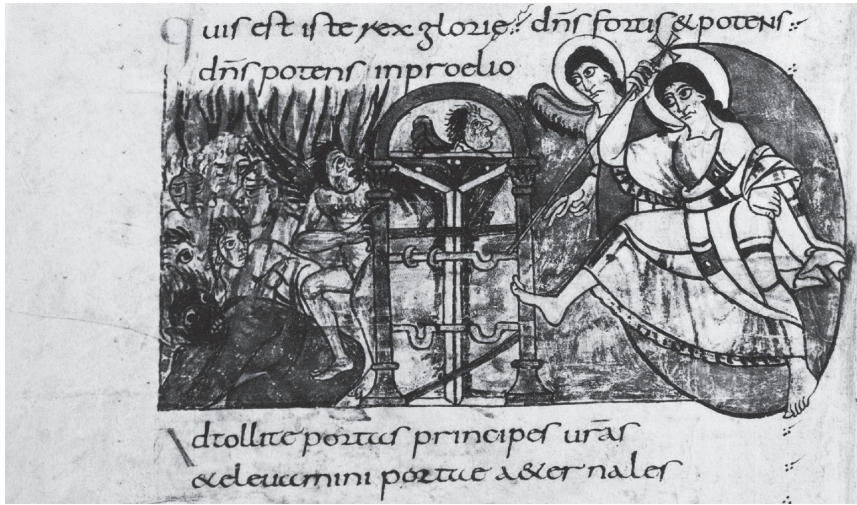 quis est iste rex glorie dns fortis & potens
dns potens in proelio
Adtollite portas principes uras
& eleuamini portae a&ernales